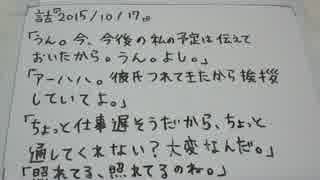 詰め2015/10/17。
「うん。今、今後の私の予定は伝えて
おいたから。うん。よし。」
「アーハハ。彼氏つれてきたから挨拶
していてよ。」
「ちょっと仕事遅そうだから、ちょっと
通してくれない?大変なんだ。」
「照れてる、照れてるのね。」